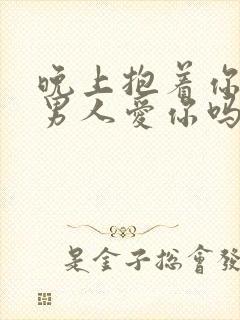 晚上抱着你
男人爱你吗
是金子总會發